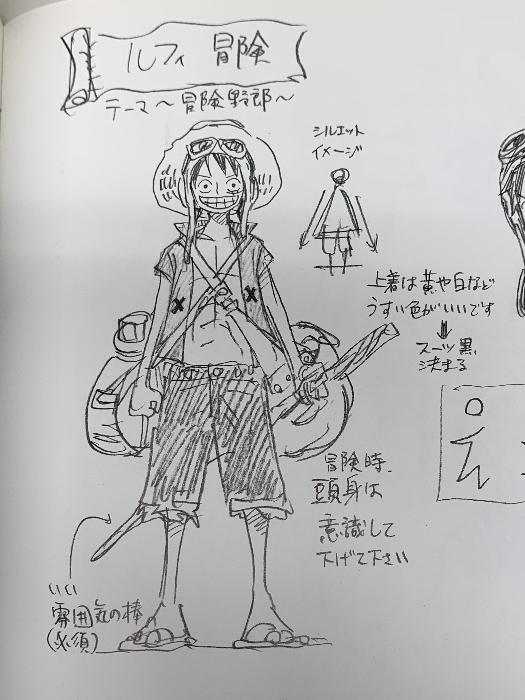 ルフィ 冒険
テーマ～冒険野郎～
シルエット
イメージ
上着は黄や白など
うすい色がいいです
スーツ黒
決まる
冒険時、
頭身は
意識して
下げて下さい
いい
雰囲気の棒
(必須)